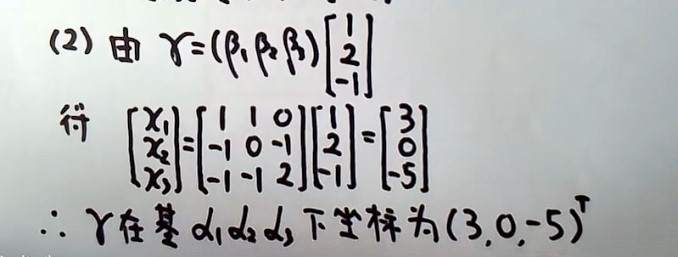 (2) 由 γ=(β₁ β₂ β₃)[1 2 -1]
得 [x₁ x₂ x₃]=[1 1 0 -1 0 -1 -1 -1 2][1 2 -1]=[3 0 -5]
∴ γ在基 α₁ α₂ α₃ 下坐标为(3,0,-5)ᵀ